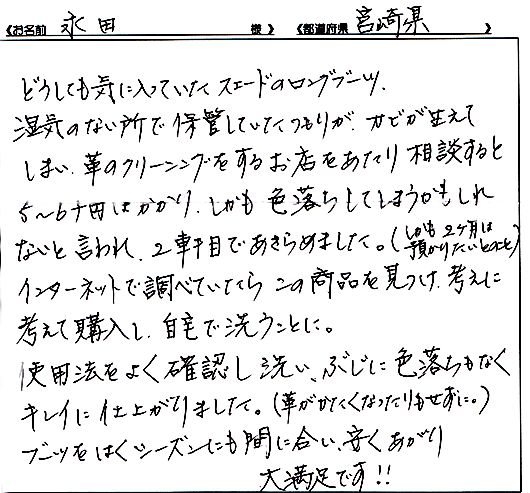 《お名前 永田 様》 《都道府県 宮崎県 》
どうしても気に入っていたスエードのロングブーツ、
湿気のない所で保管していたつもりが、カビが生えて
しまい、革のクリーニングをするお店をあたり相談すると
5〜6千円はかかり、しかも色落ちしてしまうかもしれ
ないと言われ、2軒目であきらめました。(しかも2ヶ月は
預かりたいとのこと)
インターネットで調べていたら この商品を見つけ、考えに
考えて購入し、自宅で洗うことに。
使用法をよく確認し洗い、ぶじに色落ちもなく
キレイに仕上がりました。(革がかたくなったりもせずに。)
ブーツをはくシーズンにも間に合い、安くあがり
大満足です!!